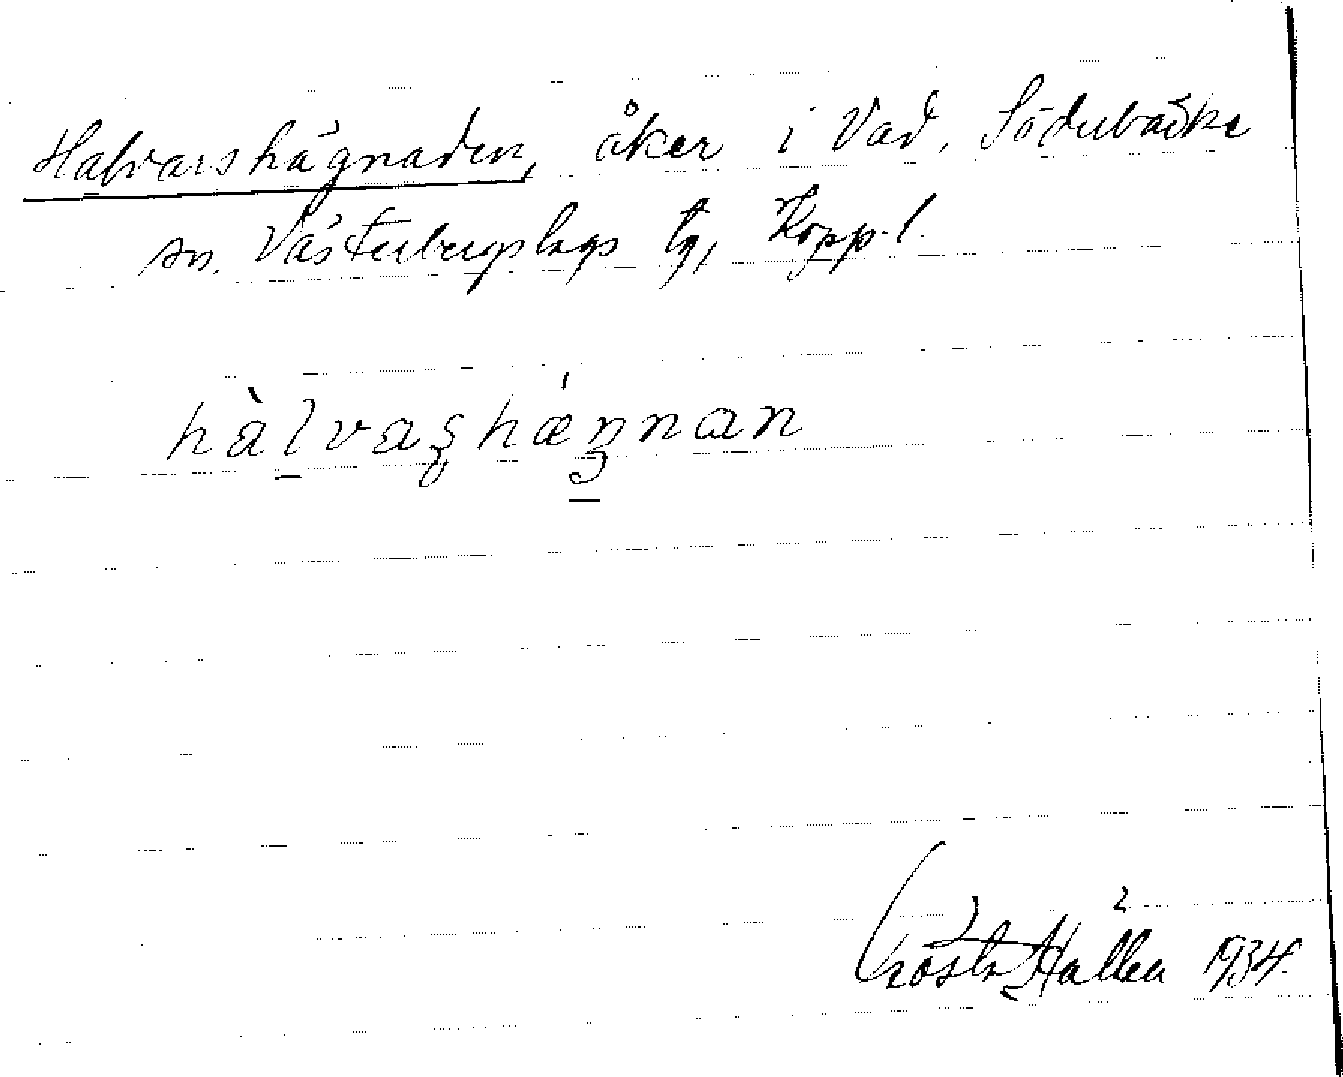 Halvarshägnaden, åker i Vad, Söderbärke
sn. Västerbergslags tg, Kopp. l.
hàlvaʂhǽŋnan
Gösta Hallén 1934.